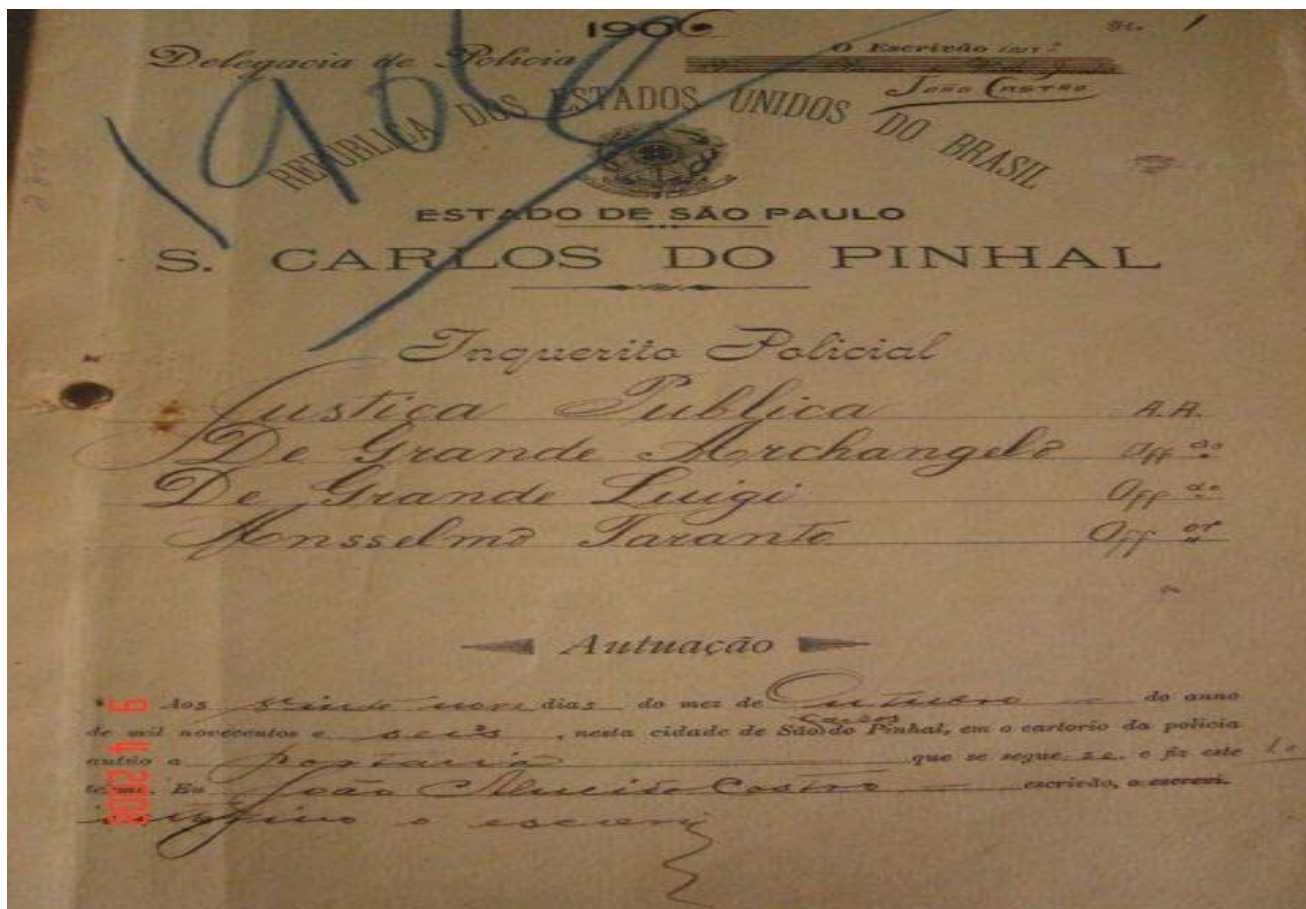 1906
1
Delegacia de Policia
O Escrivão intº
João Castro
1906
REPUBLICA DOS ESTADOS UNIDOS DO BRASIL
ESTADO DE SÃO PAULO
S. CARLOS DO PINHAL
Inquerito Policial
Justiça Publica A.A.
De Grande Archangelo Offdo
De Grande Luigi Offdo
Ansselmo Taranto Offor
Autuação
Aos vinte nove dias do mez de Outubro do anno
de mil novecentos e seis, nesta cidade de São Carlos do Pinhal, em o cartorio da policia
autúo a portaria que se segue se. e fiz este
termo. Eu João Castro escrivão, o escrevi.
interino o escrevi
9 4 2008